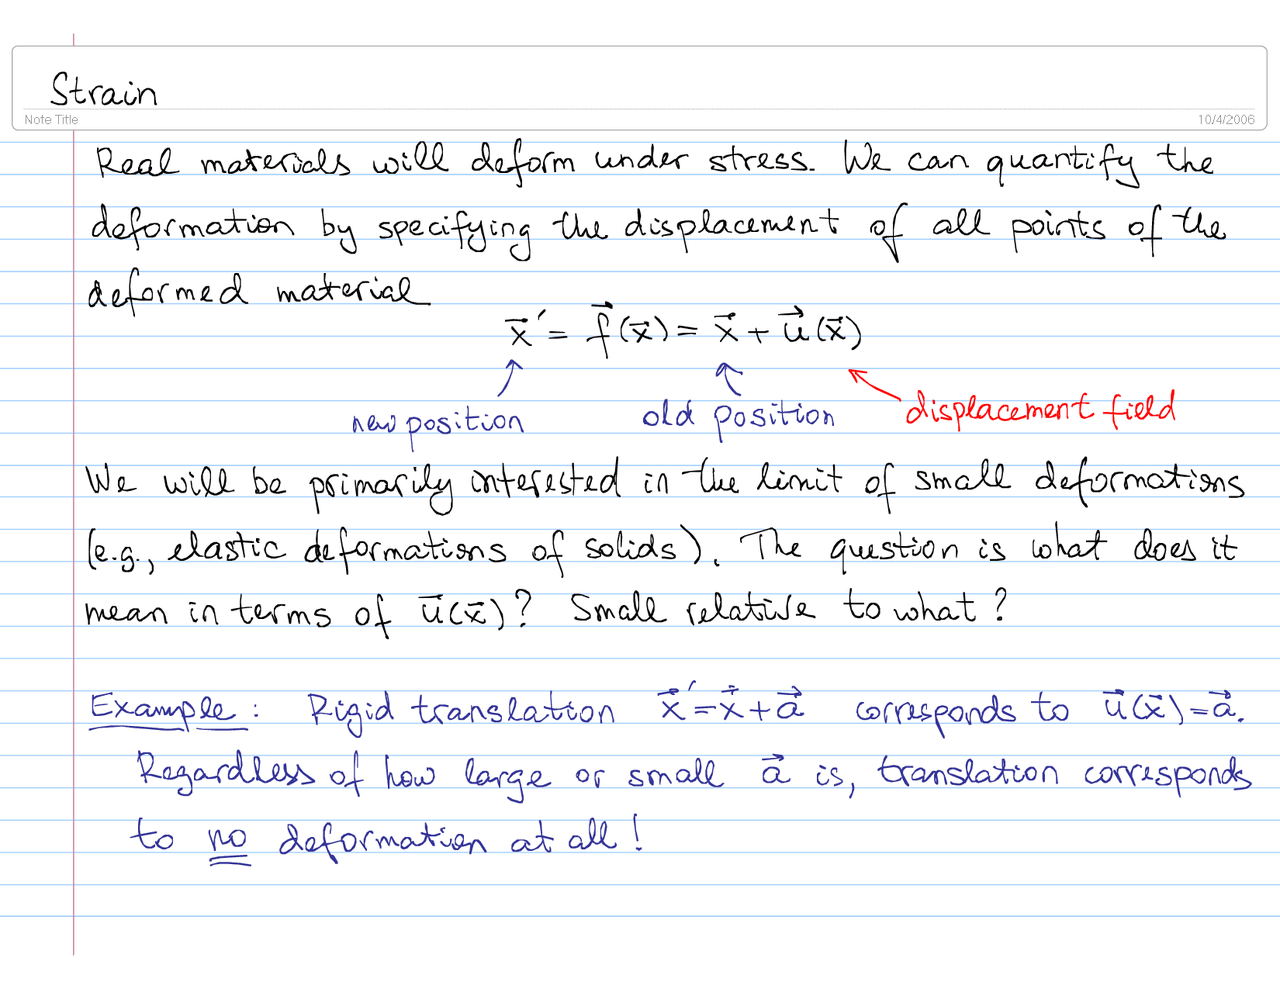 Strain
Note Title
10/4/2006
Real materials will deform under stress. We can quantify the
deformation by specifying the displacement of all points of the
deformed material
x⃗′ = f⃗(x⃗) = x⃗ + u⃗(x⃗)
new position old position displacement field
We will be primarily interested in the limit of small deformations
(e.g., elastic deformations of solids). The question is what does it
mean in terms of u⃗(x⃗)? Small relative to what?
Example: Rigid translation x⃗′ = x⃗ + a⃗ corresponds to u⃗(x⃗) = a⃗.
Regardless of how large or small a⃗ is, translation corresponds
to no deformation at all!